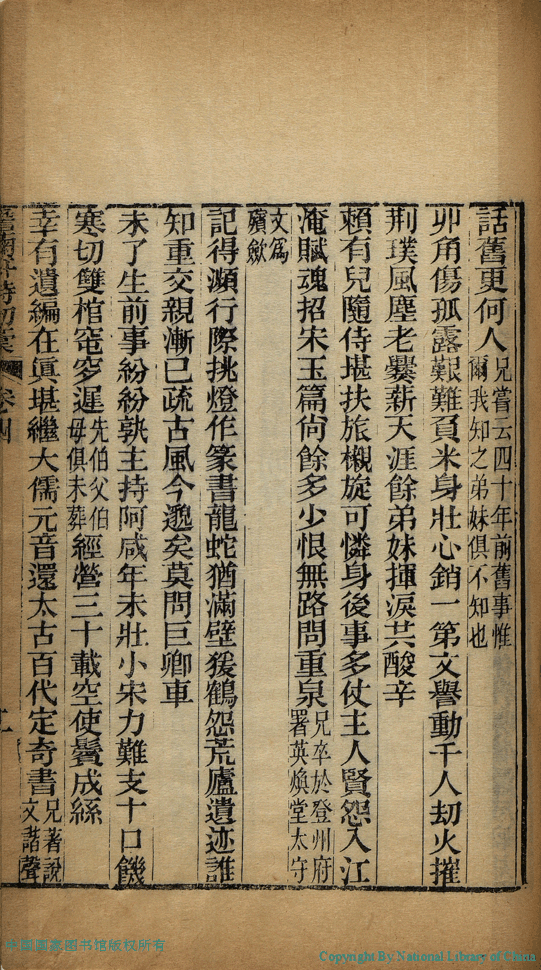 話舊更何人兄嘗云四十年前舊事惟爾我知之弟妹俱不知也
丱角傷孤露艱難負米身壯心銷一第文譽動千人劫火摧
荆璞風塵老爨薪天涯餘弟妹揮淚共酸辛
賴有兒隨侍堪扶旅櫬旋可憐身後事多仗主人賢怨入江
淹賦魂招宋玉篇尙餘多少恨無路問重泉兄卒於登州府署英煥堂太守
文爲殯歛
記得瀕行際挑燈作篆書龍蛇猶滿壁猨鶴怨荒廬遺迹誰
知重交親漸已疏古風今邈矣莫問巨卿車
未了生前事紛紛孰主持阿咸年未壯小宋力難支十口饑
寒切雙棺窀穸遲先伯父伯母俱未葬經營三十載空使鬢成絲
幸有遺編在眞堪繼大儒元音還太古百代定奇書兄著說文諧聲
卷四
Copyright By National Library of China
中国国家图书馆版权所有